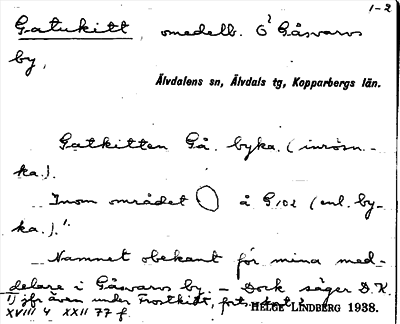 1-2
Gatukitt, omedelb. Ö Gåsvarvs
by,
Älvdalens sn, Älvdals tg, Kopparbergs län.
Gatkitten Gå. byka. (inrösn.-
ka.).
Inom området å G102 (enl. by-
ka.).¹⁾
Namnet obekant för mina med-
delare i Gåsvarvs by. – Dock säger D.K.
1) jfr även under Frostkitt,
HELGE LINDBERG 1938.
XVIII 4 XXII 77 f.